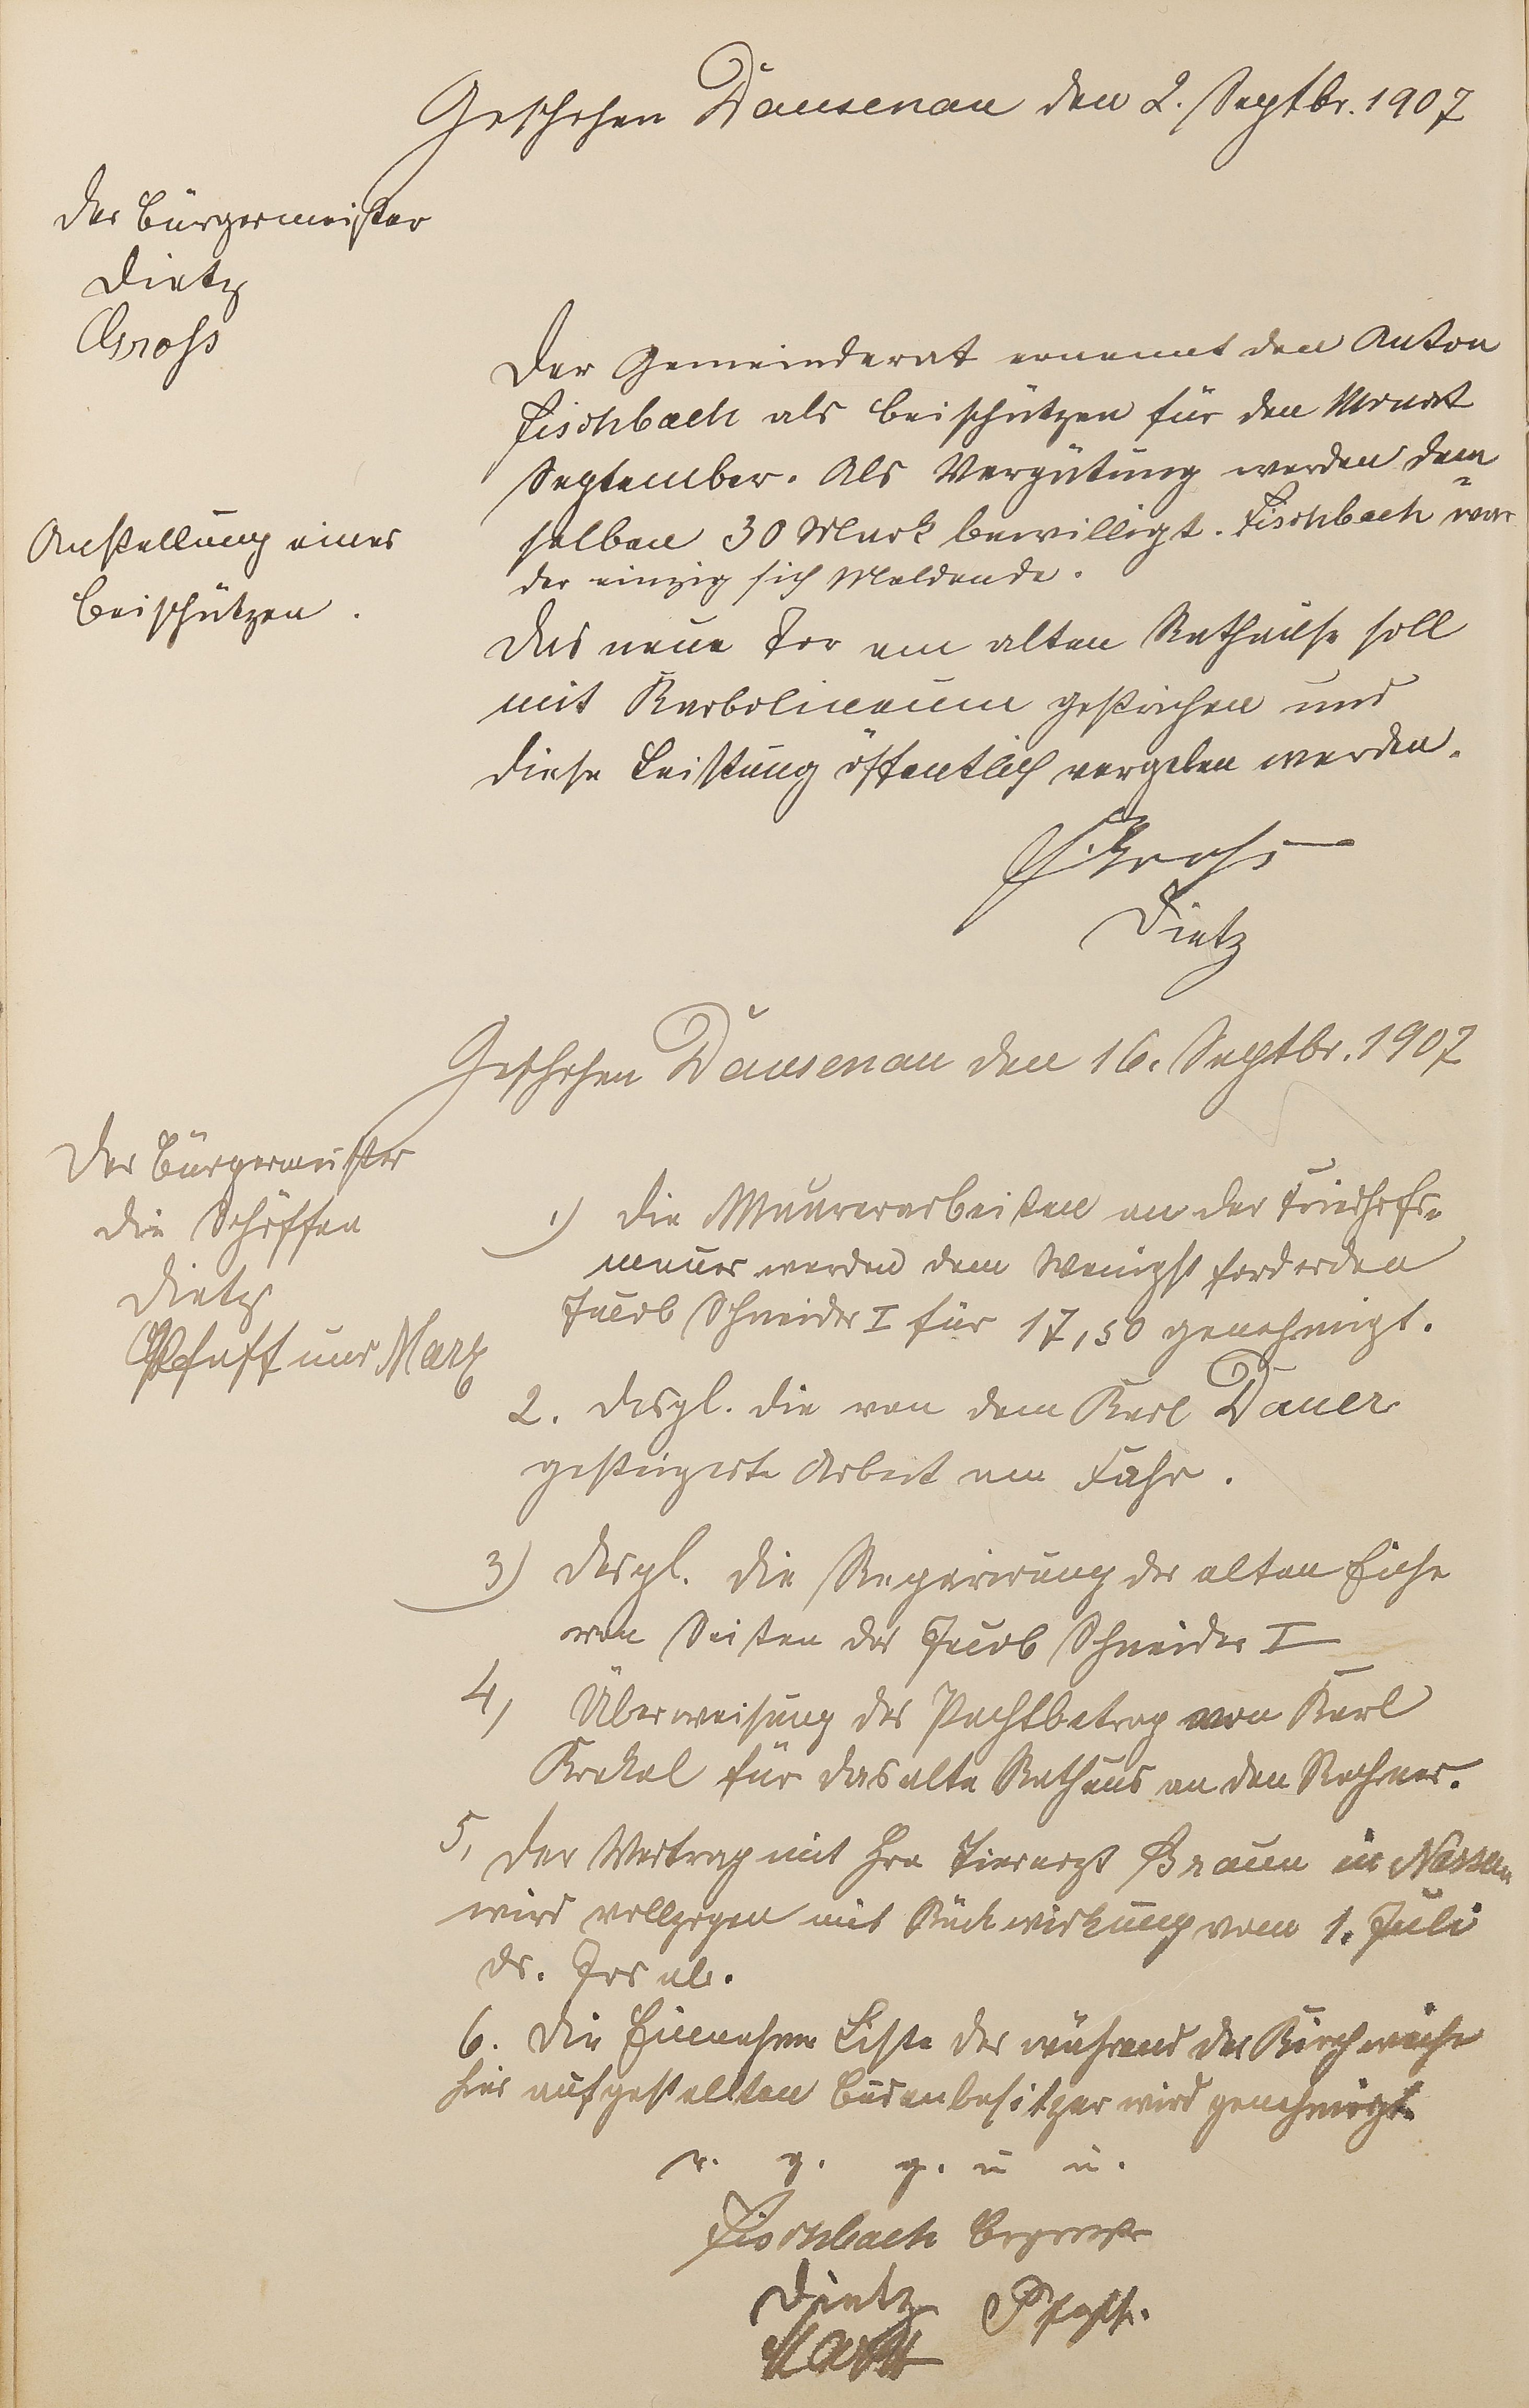 Geschehen Dausenau den 2. Septbr. 1907
Der Bürgermeister
Dietz
Gross
Der Gemeinderat ernennt den Anton
Fischbach als Beischützen für den Monat
September. Als Vergütung werden dem=
selben 30 Mark bewilligt. Fischbach war
der einzig sich Meldende.
Anstellung eines
Beischützen.
Das neue Tor am alten Rathause soll
mit Karbolineum gestrichen und
diese Leistung öffentlich vergeben werden.
Gross
Dietz
Geschehen Dausenau den 16. Septbr. 1907
Der Bürgermeister
die Schöffen
Dietz
Pfaff und Marx
1) Die Maurerarbeiten an der Friedhofs=
mauer werden dem Wenigst fordernden
Jacob Schneider I für 17,50 genehmigt.
2. Desgl. die von dem Karl Dauer
gesteigerte Arbeit am Fahr.
3) Desgl. die Reparirung der alten Eiche
von Seiten des Jacob Schneider I
4, Überweisung des Pachtbetrag von Karl
Krekel für das alte Rathaus an den Rechner.
5, Der Vertrag mit Hrn Tierarzt Braun in Nassau
wird vollzogen mit Rückwirkung vom 1. Juli
ds. Jrs ab.
6. Die Einnahme Liste der während der Kirchweihe
hier aufgestellten Budenbesitzer wird genehmigt.
v. g. g. u u.
Fischbach Bgrmstr
Dietz Pfaff.
Marx